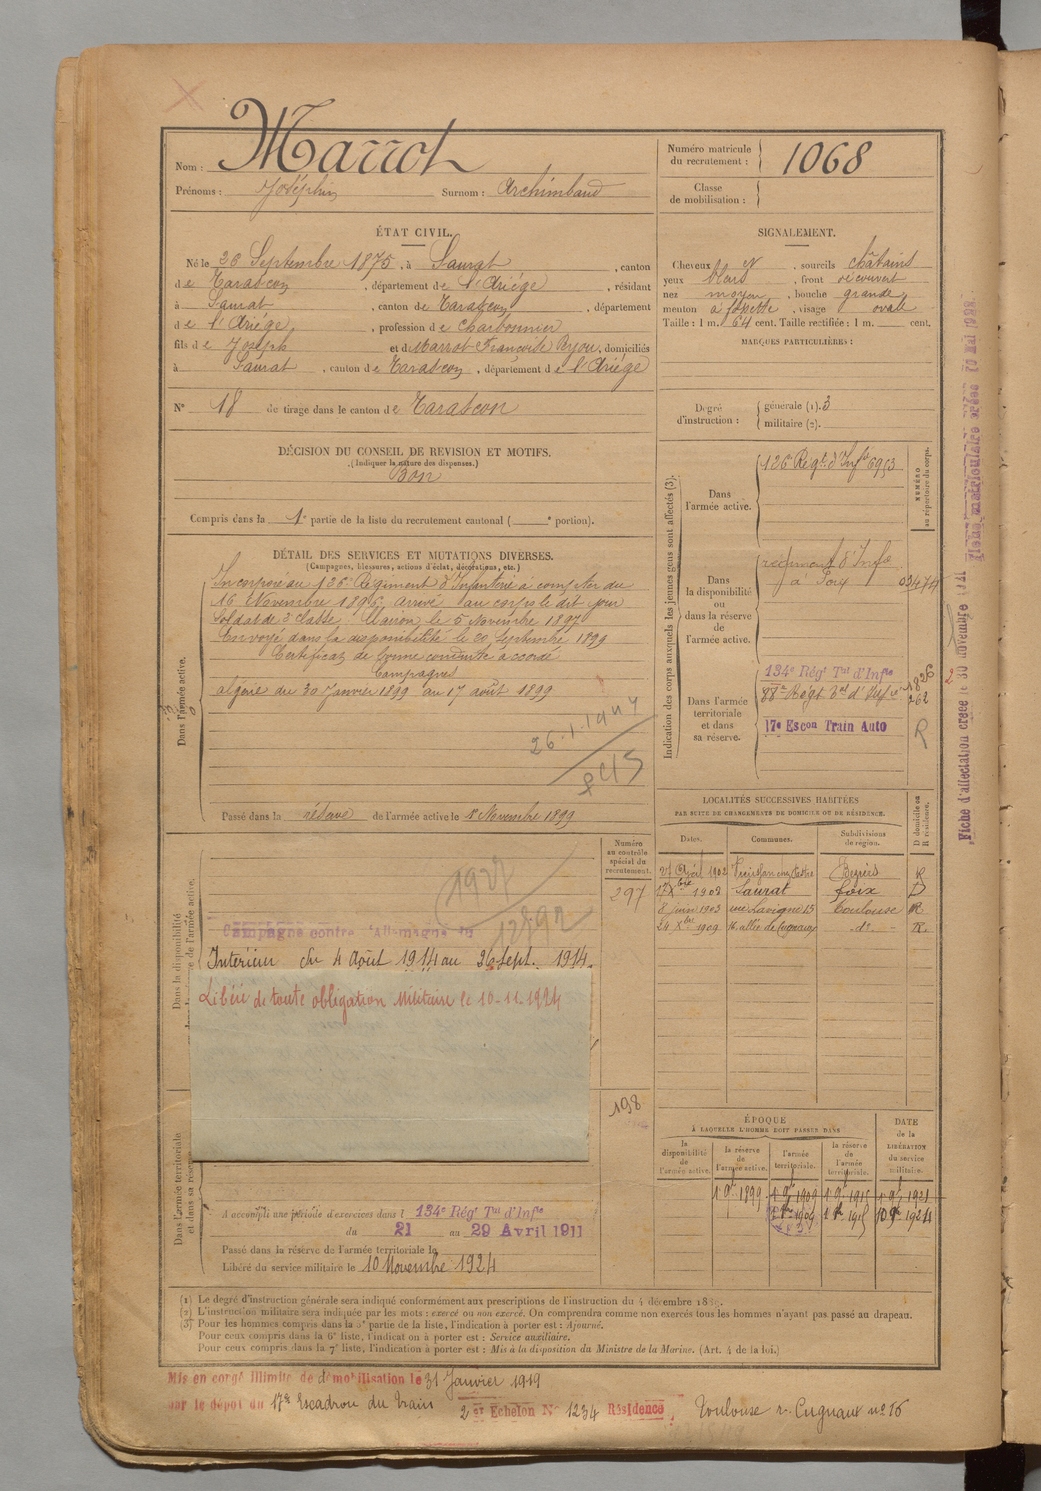 Nom : Marrot
Prénoms : Joséphin Surnom : Archimbaud
Numéro matricule du recrutement : 1068
Classe de mobilisation :
ÉTAT CIVIL.
Né le 26 Septembre 1875, à Saurat, canton
de Tarascon, département de l'Ariège, résidant
à Saurat, canton de Tarascon, département
de l'Ariège, profession de Charbonnier
fils de Joseph et de Marrot Françoise, domiciliés
à Saurat, canton de Tarascon, département de l'Ariège
N° 18 de tirage dans le canton de Tarascon
SIGNALEMENT.
Cheveux et, sourcils châtains
yeux, front découvert
nez moyen, bouche grande
menton à fossette, visage ovale
Taille : 1 m. 64 cent. Taille rectifiée : 1 m. cent.
MARQUES PARTICULIÈRES :
Degré d'instruction : générale (1). 3
militaire (2).
DÉCISION DU CONSEIL DE REVISION ET MOTIFS.
(Indiquer la nature des dispenses.)
Bon
Compris dans la 1e partie de la liste du recrutement cantonal ( e portion).
DÉTAIL DES SERVICES ET MUTATIONS DIVERSES.
(Campagnes, blessures, actions d'éclat, décorations, etc.)
Dans l'armée active.
Incorporé au 126e Régiment d'Infanterie à compter du
16 Novembre 1896. Arrivé au corps le dit jour
Soldat de 2e classe. Clairon le 5 Novembre 1897
Envoyé dans la disponibilité le 20 Septembre 1899
Certificat de bonne conduite accordé
Campagnes
Algérie du 30 Janvier 1899 au 17 août 1899
Passé dans la réserve de l'armée active le 1er Novembre 1899
Indication des corps auxquels les jeunes gens sont affectés (3).
NUMÉRO au répertoire du corps.
Dans l'armée active.
126 Régt d'Infie 6953
Dans la disponibilité ou dans la réserve de l'armée active.
régiment d'Infie
à Foix
Dans l'armée territoriale et dans sa réserve.
134e Régt Tal d'Infie
17e Escon Train Auto R
LOCALITÉS SUCCESSIVES HABITÉES
PAR SUITE DE CHANGEMENTS DE DOMICILE OU DE RÉSIDENCE.
Dates. Communes. Subdivisions de région. D domicile ou R résidence.
1902 Béziers R
1902 Saurat Foix D
8 juin 1903 rue Lavigne 15 Toulouse R
24 Xbre 1909 16 allée de Cugnaux do R
Numéro au contrôle spécial du recrutement.
297
Campagne contre l'Allemagne
Intérieur du 4 Août 1914 au 26 Sept. 1914.
Libéré de toute obligation militaire le 10-11-1924
198
A accompli une période d'exercices dans l 134e Régt Tal d'Infie
du 21 au 29 Avril 1911
Passé dans la réserve de l'armée territoriale le
Libéré du service militaire le 10 Novembre 1924
ÉPOQUE
À LAQUELLE L'HOMME DOIT PASSER DANS
la disponibilité de l'armée active. la réserve de l'armée active. l'armée territoriale. la réserve de l'armée territoriale. DATE de la LIBÉRATION du service militaire.
1 9bre 1899 1 9bre 1909 1 9bre 1915 1 9bre 1921
10 9bre 1924
(1) Le degré d'instruction générale sera indiqué conformément aux prescriptions de l'instruction du 4 décembre 1889.
(2) L'instruction militaire sera indiquée par les mots : exercé ou non exercé. On comprendra comme non exercés tous les hommes n'ayant pas passé au drapeau.
(3) Pour les hommes compris dans la 5e partie de la liste, l'indication à porter est : Ajourné.
Pour ceux compris dans la 6e liste, l'indication à porter est : Service auxiliaire.
Pour ceux compris dans la 7e liste, l'indication à porter est : Mis à la disposition du Ministre de la Marine. (Art. 4 de la loi.)
Mis en congé illimité de démobilisation le 31 Janvier 1919
par le dépôt du 17e Escadron du Train 2e Echelon N° 1234 Résidence Toulouse r. Cugnaux no 16